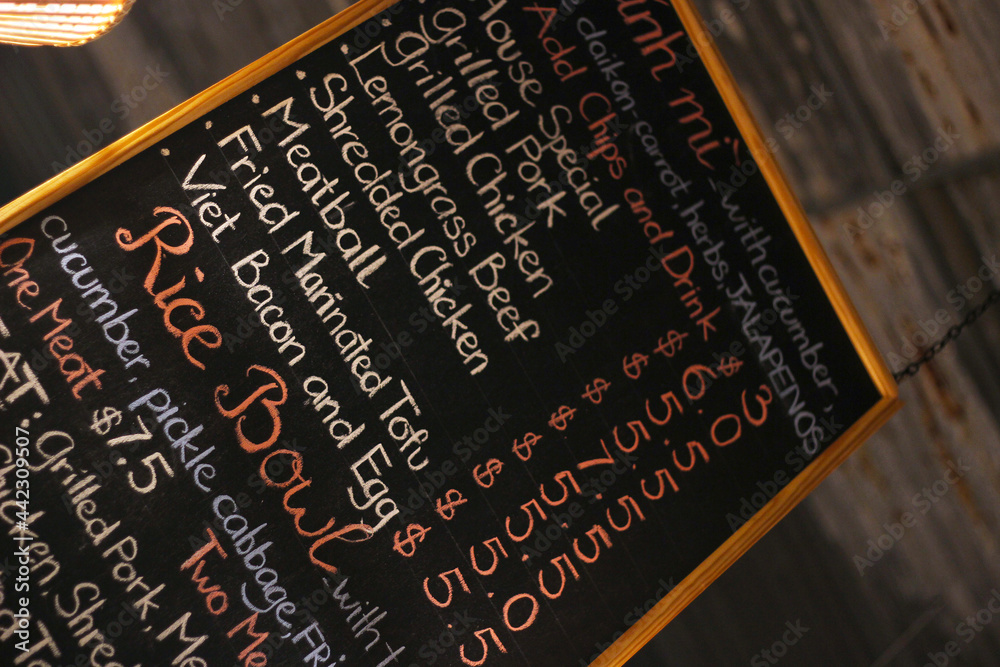 ánh mì - with cucumber,
daikon-carrot, herbs, JALAPENOS
Add Chips and Drink $ 3
House Special $ 6.0
Grilled Pork $ 5.5
Grilled Chicken $ 5.5
Lemongrass Beef $ 7.5
. Shredded Chicken $ 5.5
. Meatball $ 5.5
. Fried Marinated Tofu $ 5.0
. Viet Bacon and Egg $ 5.5
Rice Bowl - with
cucumber, pickle cabbage,
One Meat $7.5 Two Me
AT: Grilled Pork, Me
cken, Shre
Adobe Stock | #442309507